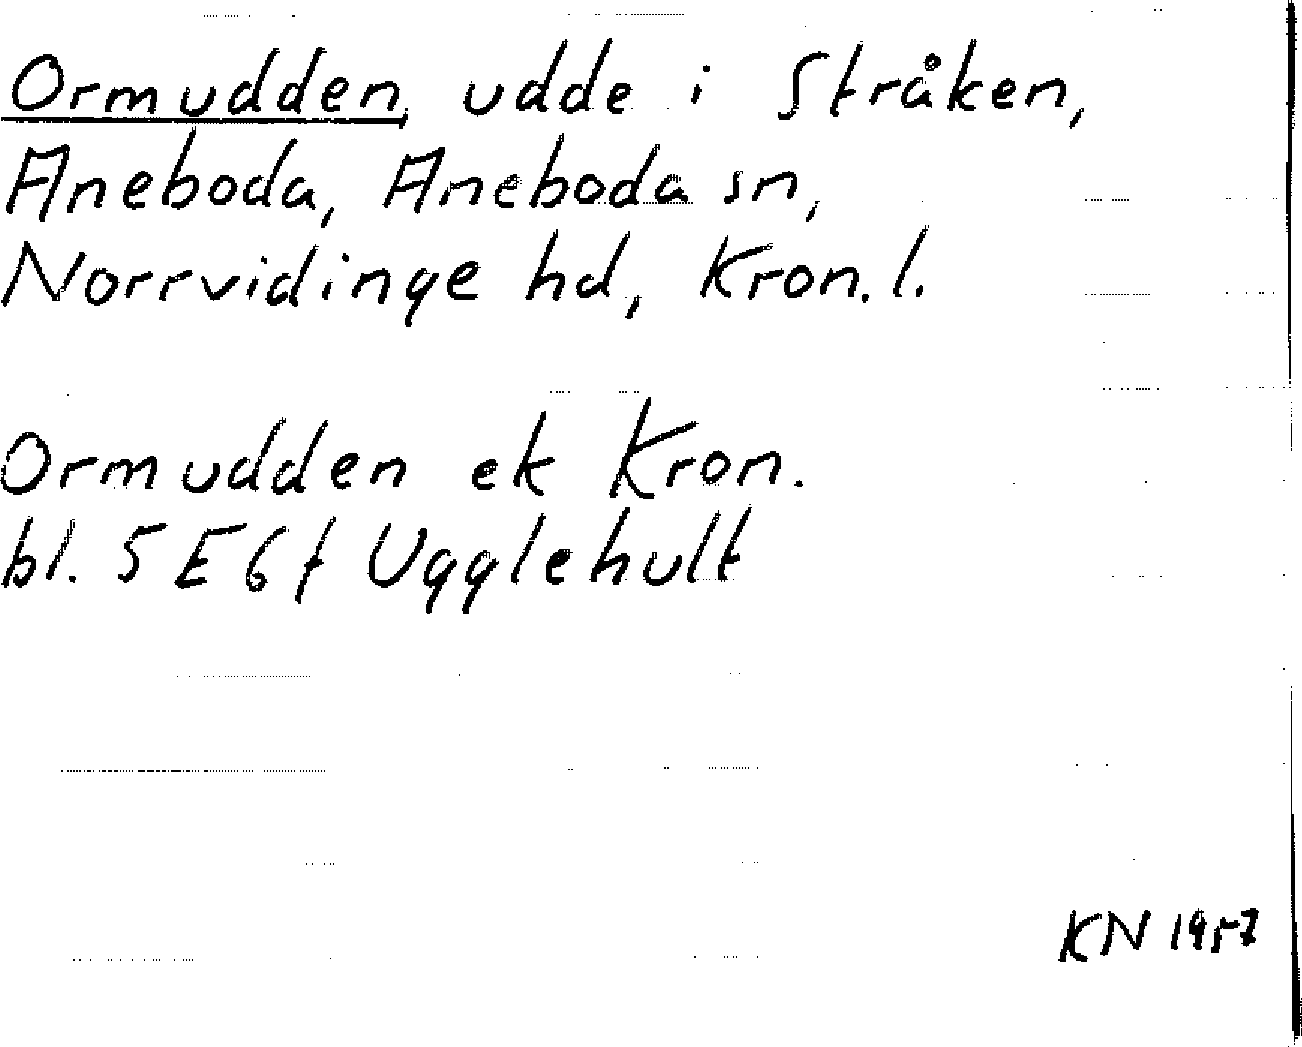 Ormudden, udde i Stråken,
Aneboda, Aneboda sn,
Norrvidinge hd, Kron. l.
Ormudden ek Kron.
bl. 5 E 6 f Ugglehult
KN 1957